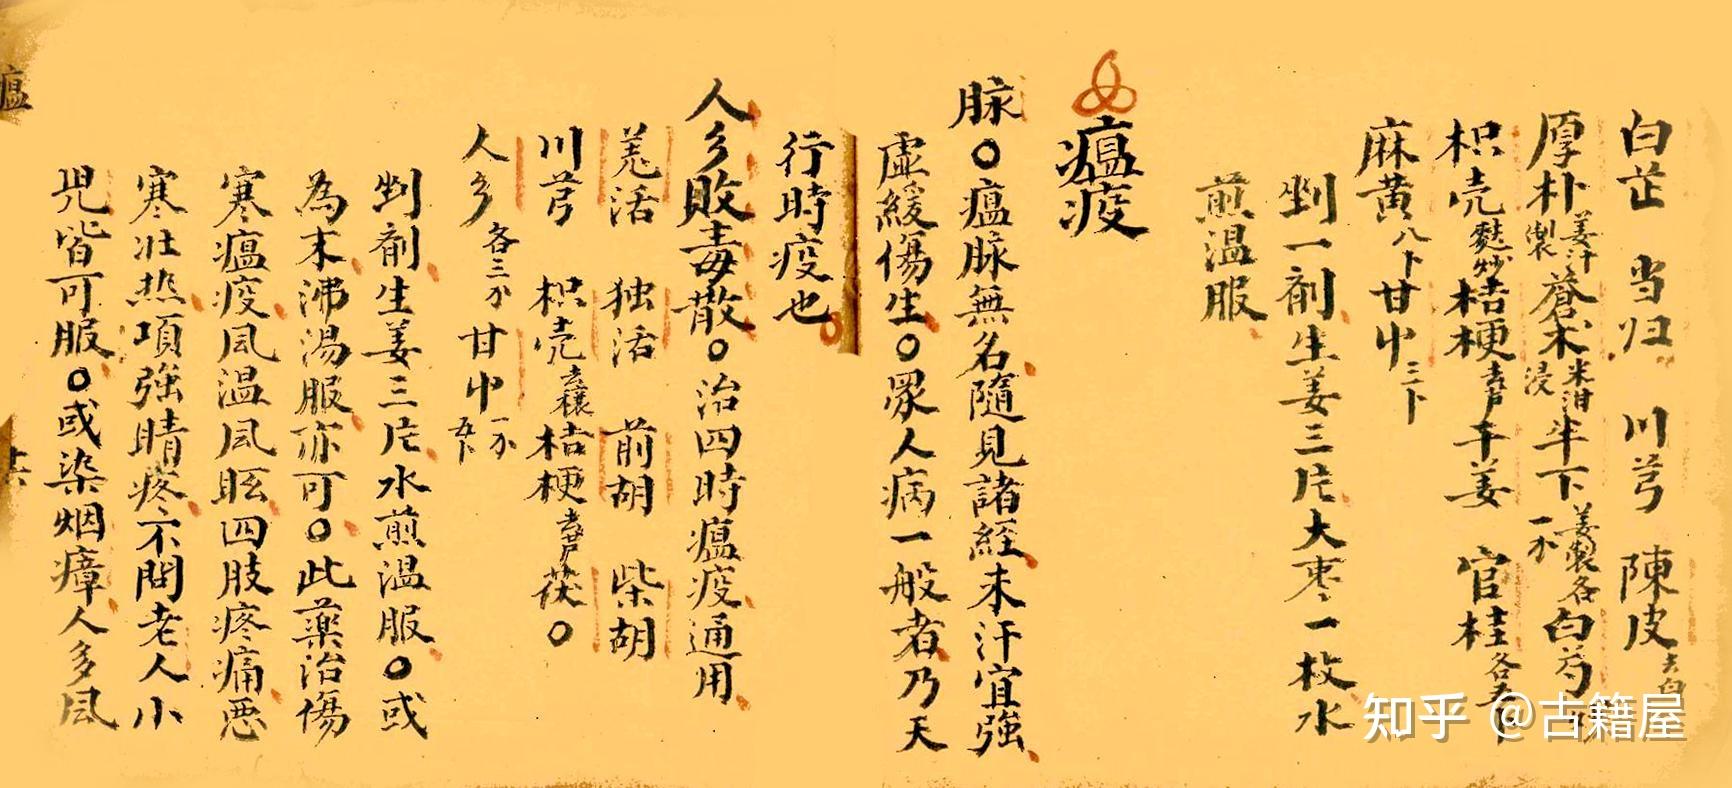 白芷 当归 川芎 陳皮去白
厚朴姜汁製蒼术米泔浸半下姜製各一分白芍
枳壳麩炒桔梗去芦干姜 官桂各五
麻黄八卜甘屮三卜
剉一剤生姜三片大枣一枚水
煎温服
瘟疫
脉〇瘟脉無名隨見諸経未汗宜強
虛緩傷生〇眾人病一般者乃天
行時疫也
人参敗毒散〇治四時瘟疫通用
羗活 独活 前胡 柴胡
川芎 枳壳去穰桔梗去芦茯〇
人参各三分甘屮一分五卜
剉剤生姜三片水煎温服〇或
為末沸湯服亦可〇此藥治傷
寒瘟疫風温風眩四肢疼痛恶
寒壮热項強睛疼不問老人小
児皆可服〇或染烟瘴人多風
瘟
知乎 @古籍屋